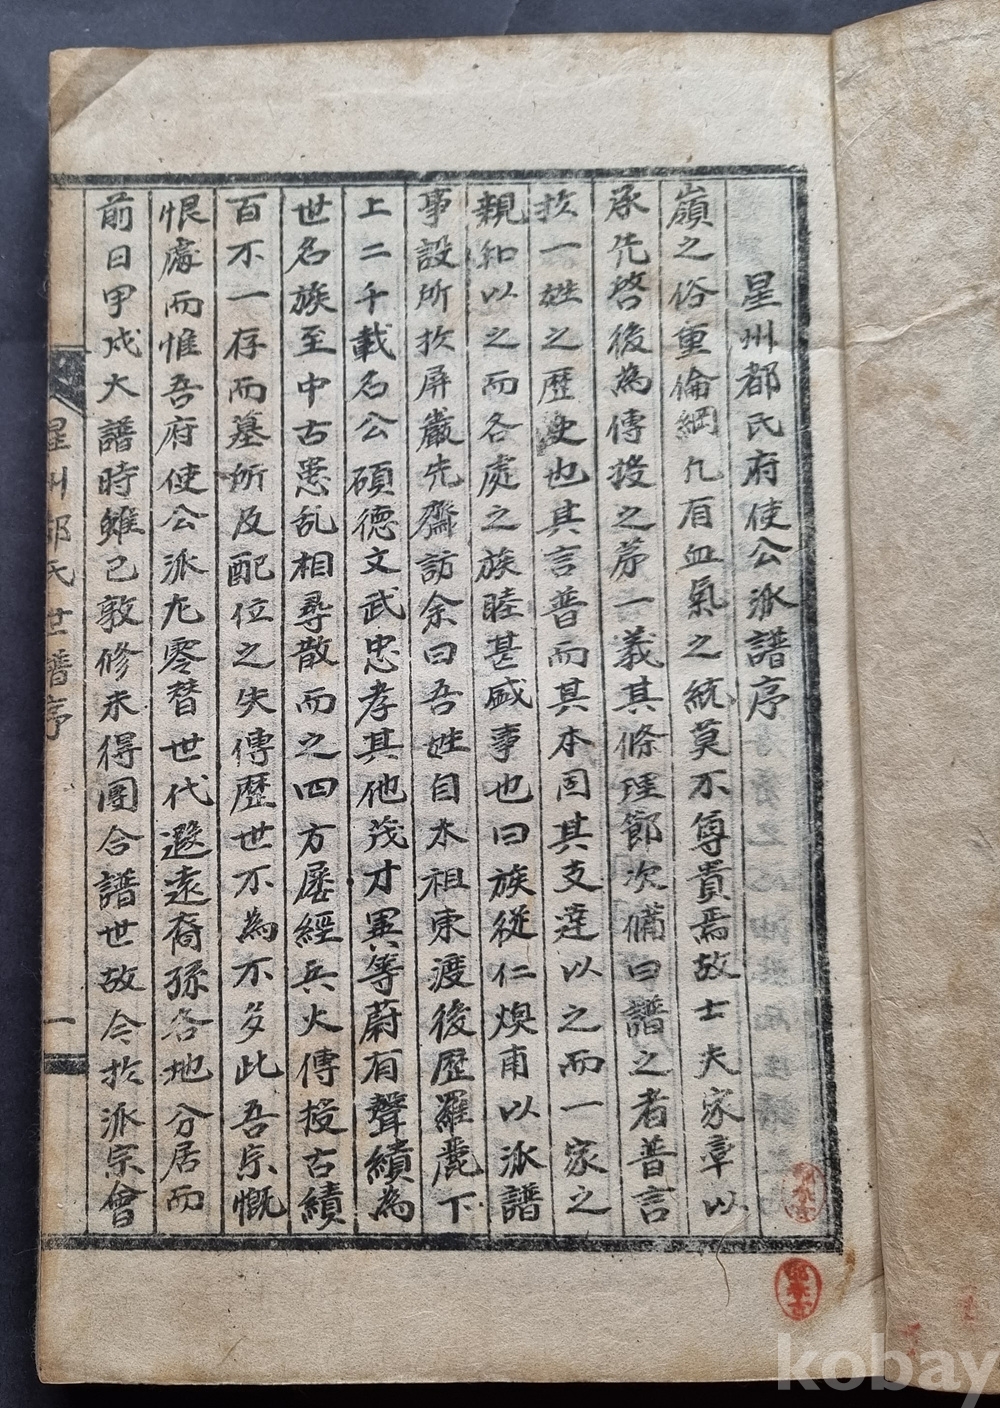 星州都氏府使公派譜序
嶺之俗重倫綱凡有血氣之統莫不尊貴焉故士夫家章以
承先啓後為傳授之第一義其條理節次備曰譜之者普言
扵一姓之歷史也其言普而其本固其支達以之而一家之
親和以之而各處之族睦甚盛事也曰族從仁煥甫以派譜
事設所扵屏巖先齋訪余曰吾姓自本祖東渡後歷羅麗下
上二千載名公碩德文武忠孝其他茂才異等蔚有聲績為
世名族至中古患乱相尋散而之四方屡經兵火傳授古績
百不一存而墓所及配位之失傳歷世不為不多此吾宗慨
恨處而惟吾府使公派尤零替世代遐遠裔孫各地分居而
前日甲戌大譜時雖已敦修未得團合譜世故今扵派宗會
星州都氏世譜序
一
kobay